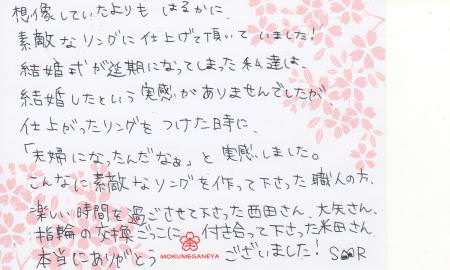 想像していたよりも はるかに、
素敵なリングに仕上げて頂いていました!
結婚式が延期になってしまった私達は、
結婚したという実感がありませんでしたが、
仕上がったリングを つけた時に、
「夫婦になったんだなぁ」と実感しました。
こんなに素敵なリングを作って下さった職人の方、
楽しい時間を過ごさせて下さった西田さん、大矢さん、
指輪の交換ごっこに 付き合って下さった米田さん、
本当にありがとう ございました! S R
MOKUMEGANEYA